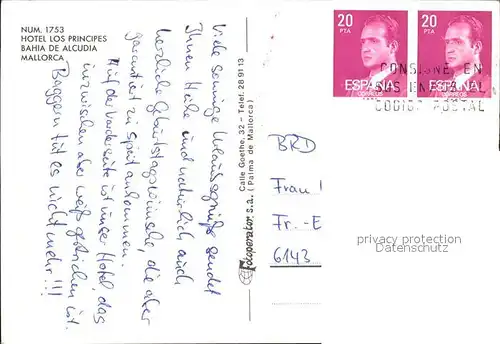 NUM. 1753
HOTEL LOS PRINCIPES
BAHIA DE ALCUDIA
MALLORCA
Viele sonnige Urlaubsgrüße sendet
Ihnen Heike und natürlich auch
herzliche Geburtstagswünsche, die aber
garantiert zu spät ankommen.
Auf der Vorderseite ist unser Hotel, das
inzwischen aber weiß gestrichen ist.
Baggern tut es nicht mehr!!!
Fotoperator, s.a.
Calle Goethe, 32 - Telef. 28 91 13
(Palma de Mallorca)
20
PTA
ESPAÑA
CORREOS
20
PTA
ESPAÑA
CORREOS
CONSIGNE EN
CODIGO POSTAL
BRD
Frau
Fr.-E
6143
privacy protection
Datenschutz